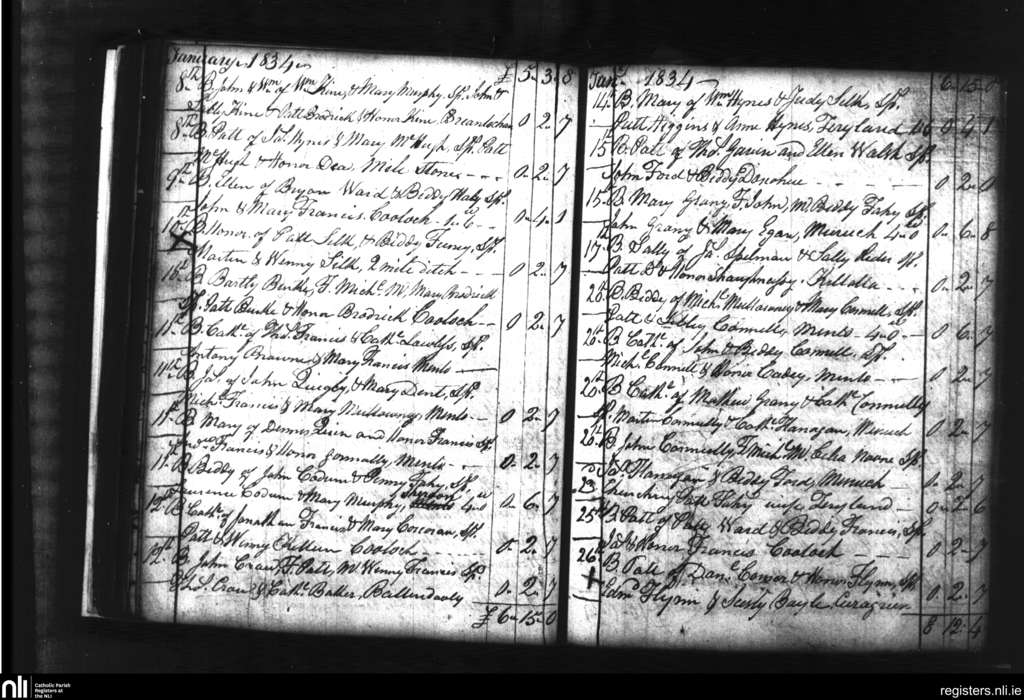 January 1834
£ 5 - 3 - 8
8th B. John & Wm of Wm Hine, & Mary Murphy Sp. John &
Hine & Patt Brodrick & Honor Hine, 0 2 7
8th B. Patt of Js. Hynes & Mary McHugh, Sp. Patt
McHugh & Honor Dea, Mile Stone 0 2 7
9th B. Ellen of Bryan Ward & Biddy Sp.
John & Mary Francis Cooloch 0 4 1
B. Honor of Patt Silk, & Biddy Sp.
Martin & Winny Silk, 2 mile ditch 0 2 7
B. Bartly Burke, F. Michl. M. Mary Brodrick
Sp. Patt Burke & Hona Brodrick Cooloch 0 2 7
B. Cathe. of Thos. Francis & Cathe. Lawless, Sp.
Antony Browne & Mary Francis Menlo
B. Js. of John Quigly, & Mary Dent, Sp.
Michl. Francis & Mary Mullowney Menlo 0 2 7
11th B. Mary of Dennis Quin and Honor Francis Sp.
Francis & Honor Connolly, Menlo 0 2 7
B. Biddy of John Codum & Penny Sp.
Laurence Codum & Mary Murphy, 4-0 0 6 7
12th B. Cathe. of Jonathan Francis & Mary Corcoran, Sp.
Patt & Winny Cullun Cooloch 0 2 7
12th B. John Craw, F. Patt, M. Winny Francis Sp.
Craw & Cathe. Baker, Ballindooly 0 2 7
£ 6 - 15 - 0
Jany. 1834
6 - 15 - 0
14th B. Mary of Wm Hynes & Judy Silk, Sp.
Patt Higgins & Anne Hynes, Teryland 0 4 1
15th B. Patt of Thos. Gavin and Ellen Walsh Sp.
John Ford & Biddy Donohue 0 2 0
15th B. Mary Grany F. John, M. Biddy Fahy Sp.
John Grany & Mary Egan, Miruch 4-0 0 6 8
17th B. Sally of Js. Spelman & Sally Rider Sp.
Patt D & Honor Shaughnessy, 0 2 7
20th B. Biddy of Michl. Mullowney & Mary Connell, Sp.
Patt & Sibby Connell, Menlo 4-0 0 6 7
20th B. Cathe. of John & Biddy Connell, Sp.
Michl. Connell & Honor Menlo 0 2 7
20th B. Cathe. of Mathew Grany & Cathe. Connolly
Sp. Martin Connolly & Cathe. Flanagan, Miruch 0 2 7
20th B. John Connolly, F. Michl. M. Celia Noone Sp.
Js. Flanagan & Biddy Ford, Miruch 0 2 7
23rd Churching Patt Fahy wife Teryland 0 2 6
25th B. Patt of Ward & Biddy Francis, Sp.
Js. & Honor Francis Cooloch 0 2 7
26th B. Patt of Danl. & Honor Flynn, Sp.
Edmd. Flynn & Boyle, Curagrien 0 2 7
8 12 4
nli
Catholic Parish
Registers at
the NLI
registers.nli.ie